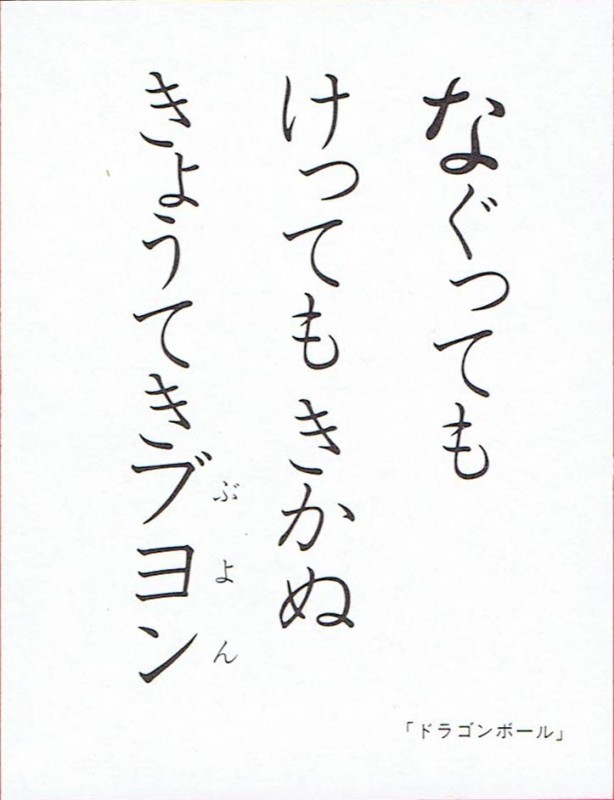 なぐっても
けっても きかぬ
きょうてきブヨン
ぶよん
「ドラゴンボール」